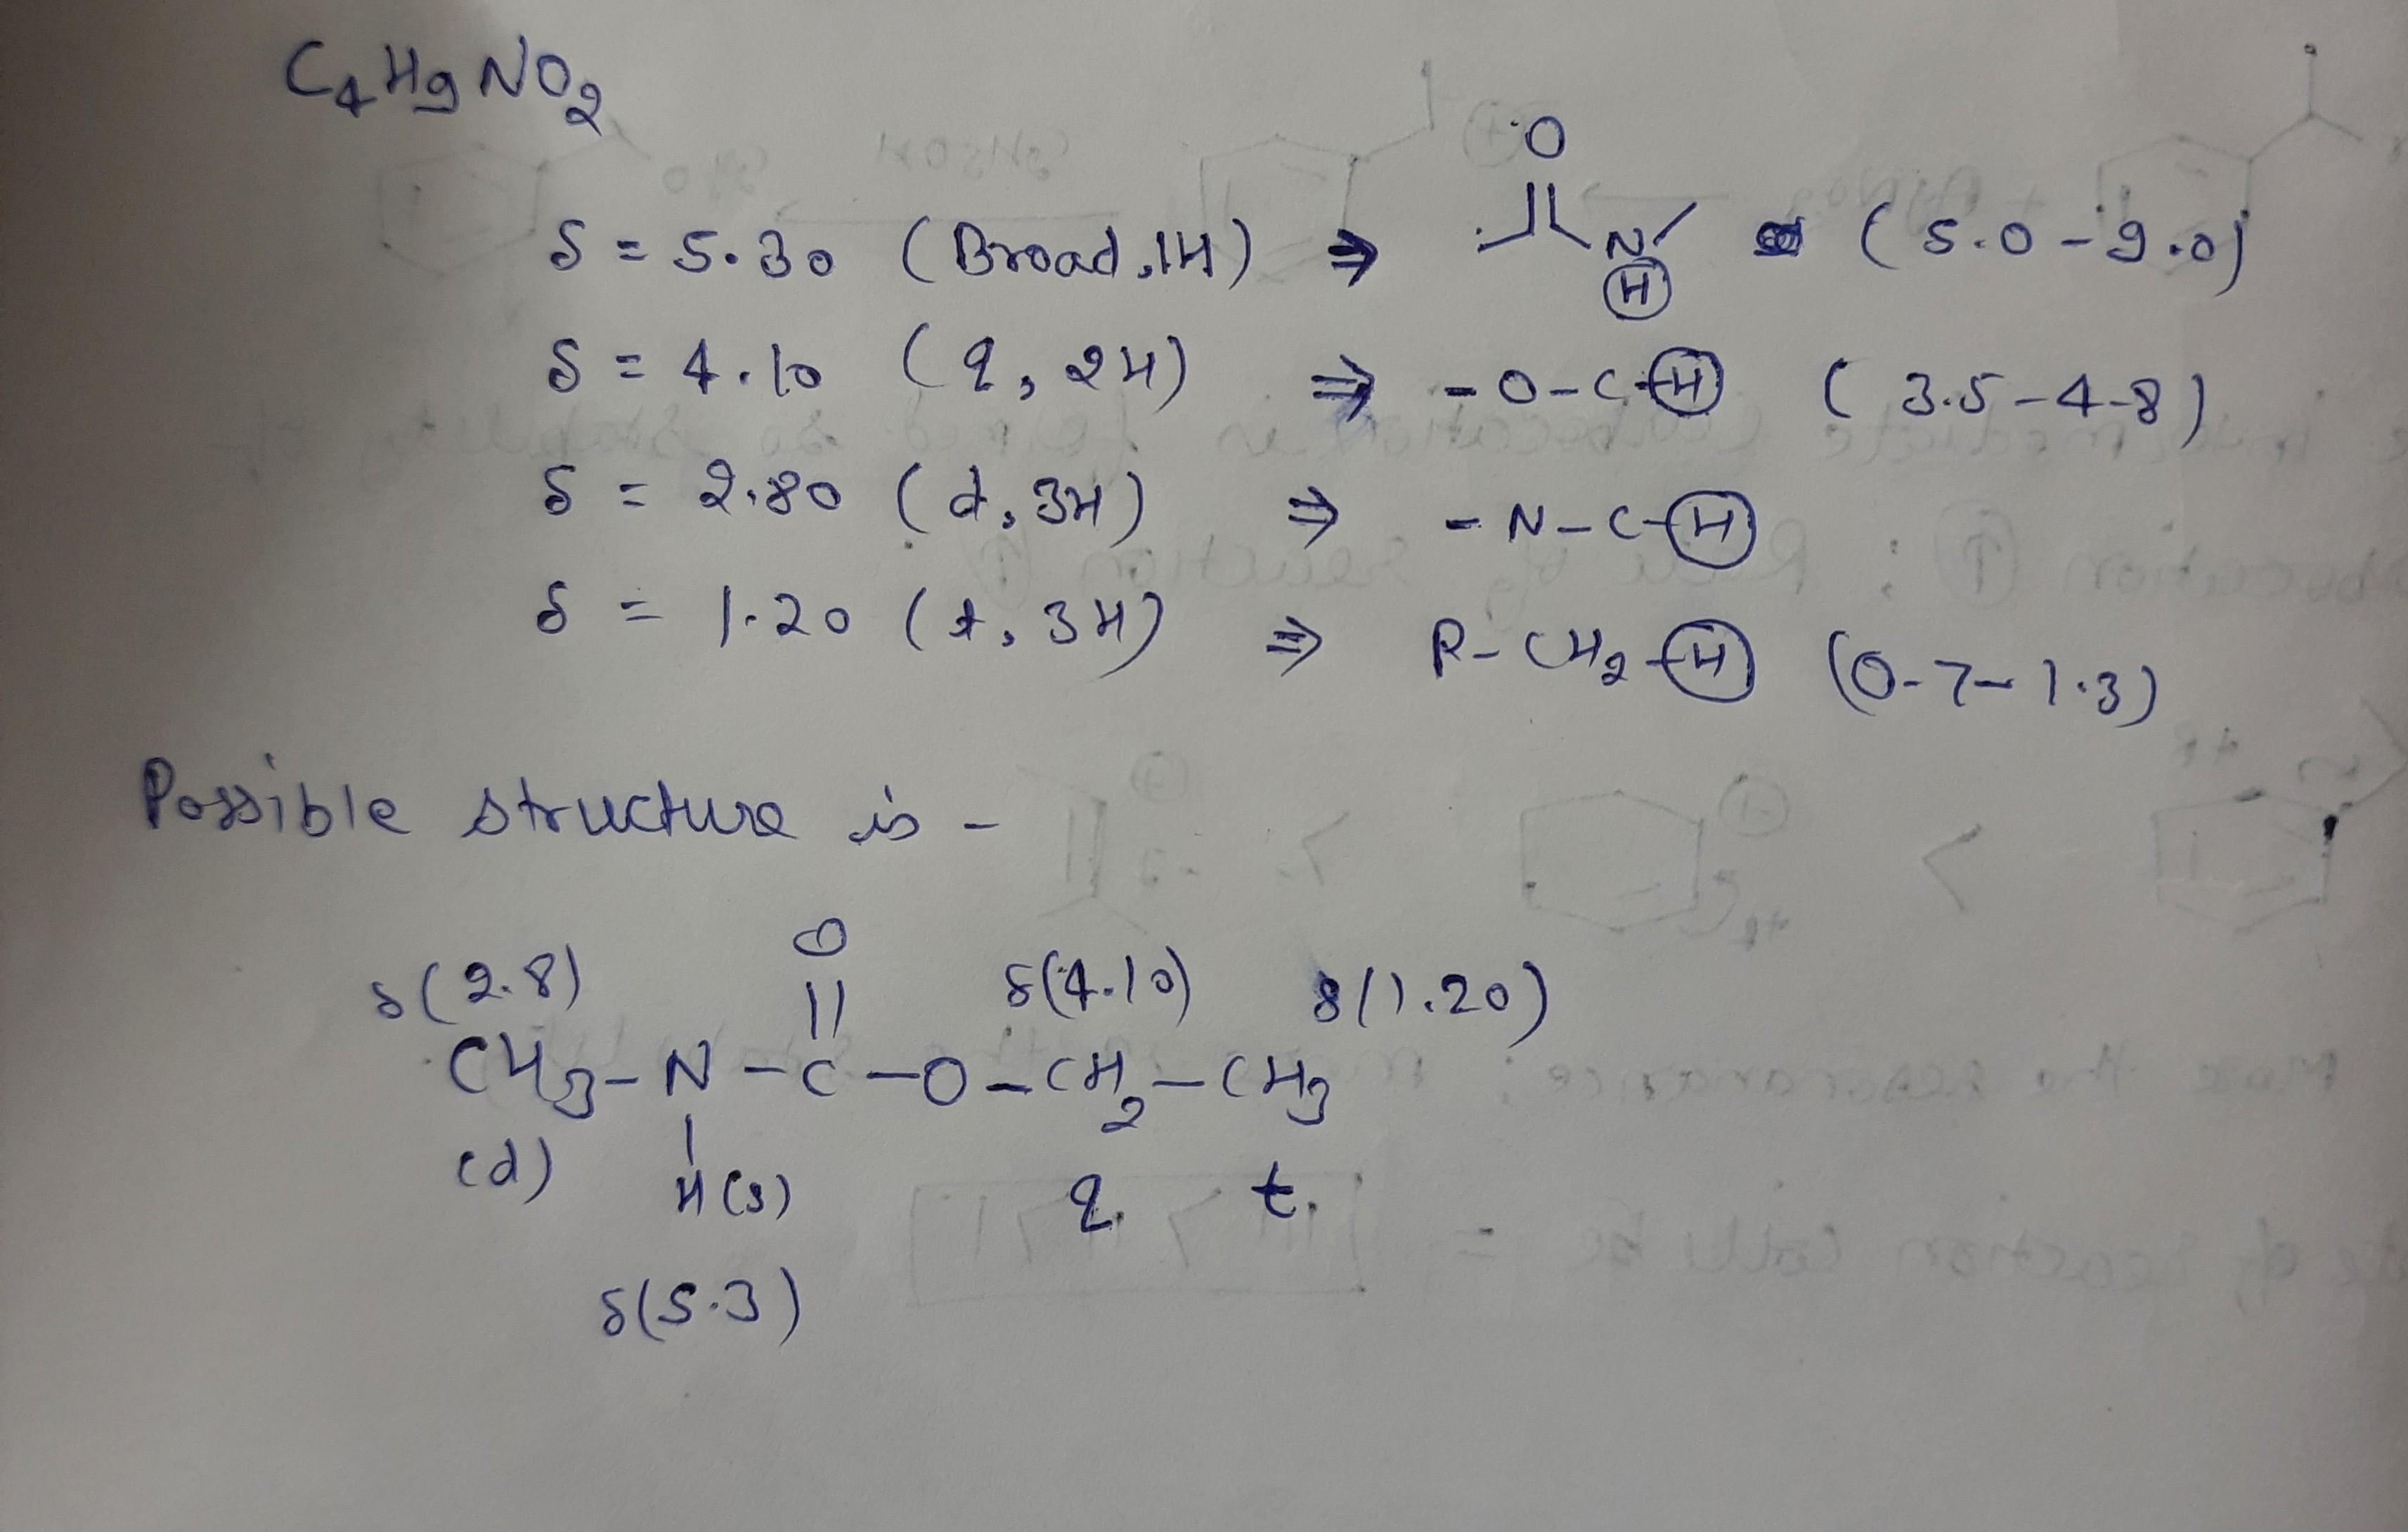 C4H9NO2
δ = 5.30 (Broad, 1H) ⇒ O || N H (5.0-9.0)
δ = 4.10 (q, 2H) ⇒ -O-C-H (3.5-4-8)
δ = 2.80 (d, 3H) ⇒ -N-C-H
δ = 1.20 (t, 3H) ⇒ R-CH2-H (0-7-1.3)
Possible structure is -
δ(2.8) O δ(4.10) δ(1.20)
CH3-N-C-O-CH2-CH3
(d) H(s) q. t.
δ(5.3)